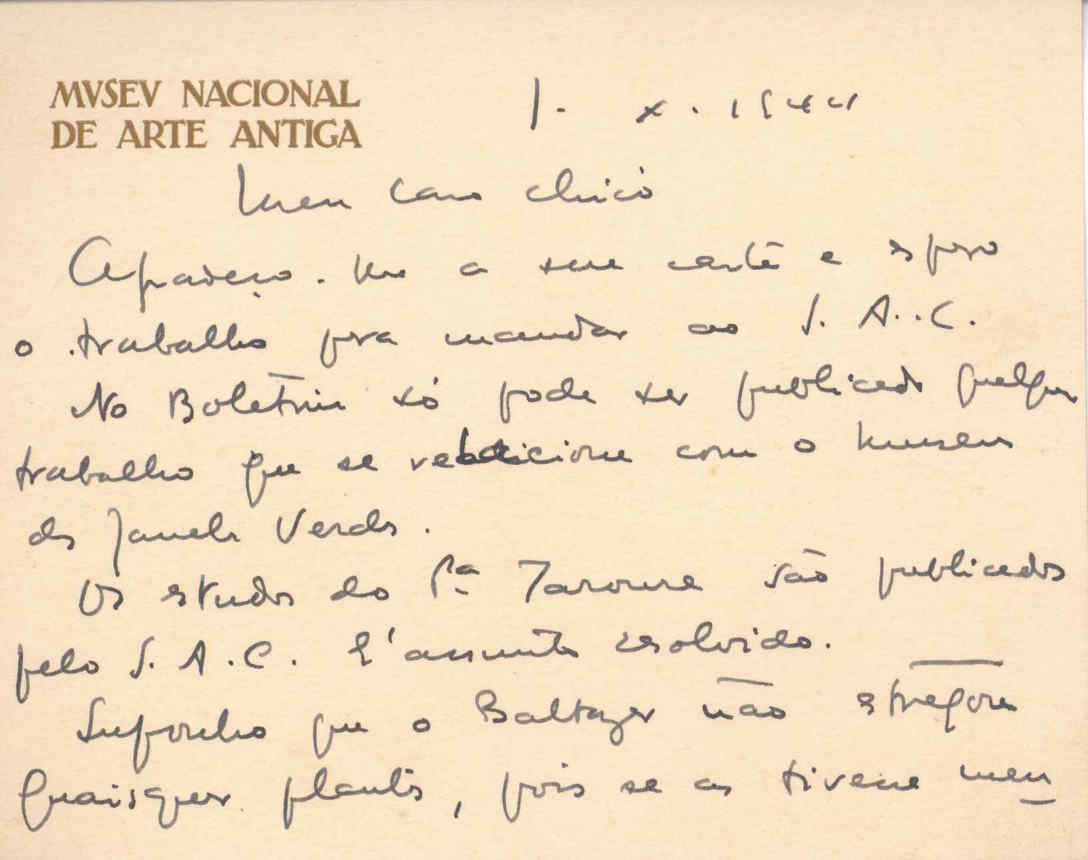 MVSEV NACIONAL
DE ARTE ANTIGA
1. X. 1944
Meu caro Chicó
Agradeço-lhe a sua carta e espero
o trabalho para mandar ao S. A. C.
No Boletim só pode ser publicado qualquer
trabalho que se relacione com o Museu
das Janelas Verdes.
Os estudos do Pª Tarouca são publicados
pelo S. A. C. É assunto resolvido.
Suponho que o Baltazar não
quaisquer plantas, pois se as tivesse men